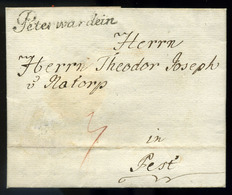 Peterwardein
Herrn
Herrn Theodor Joseph
v Natorp
in
Pest